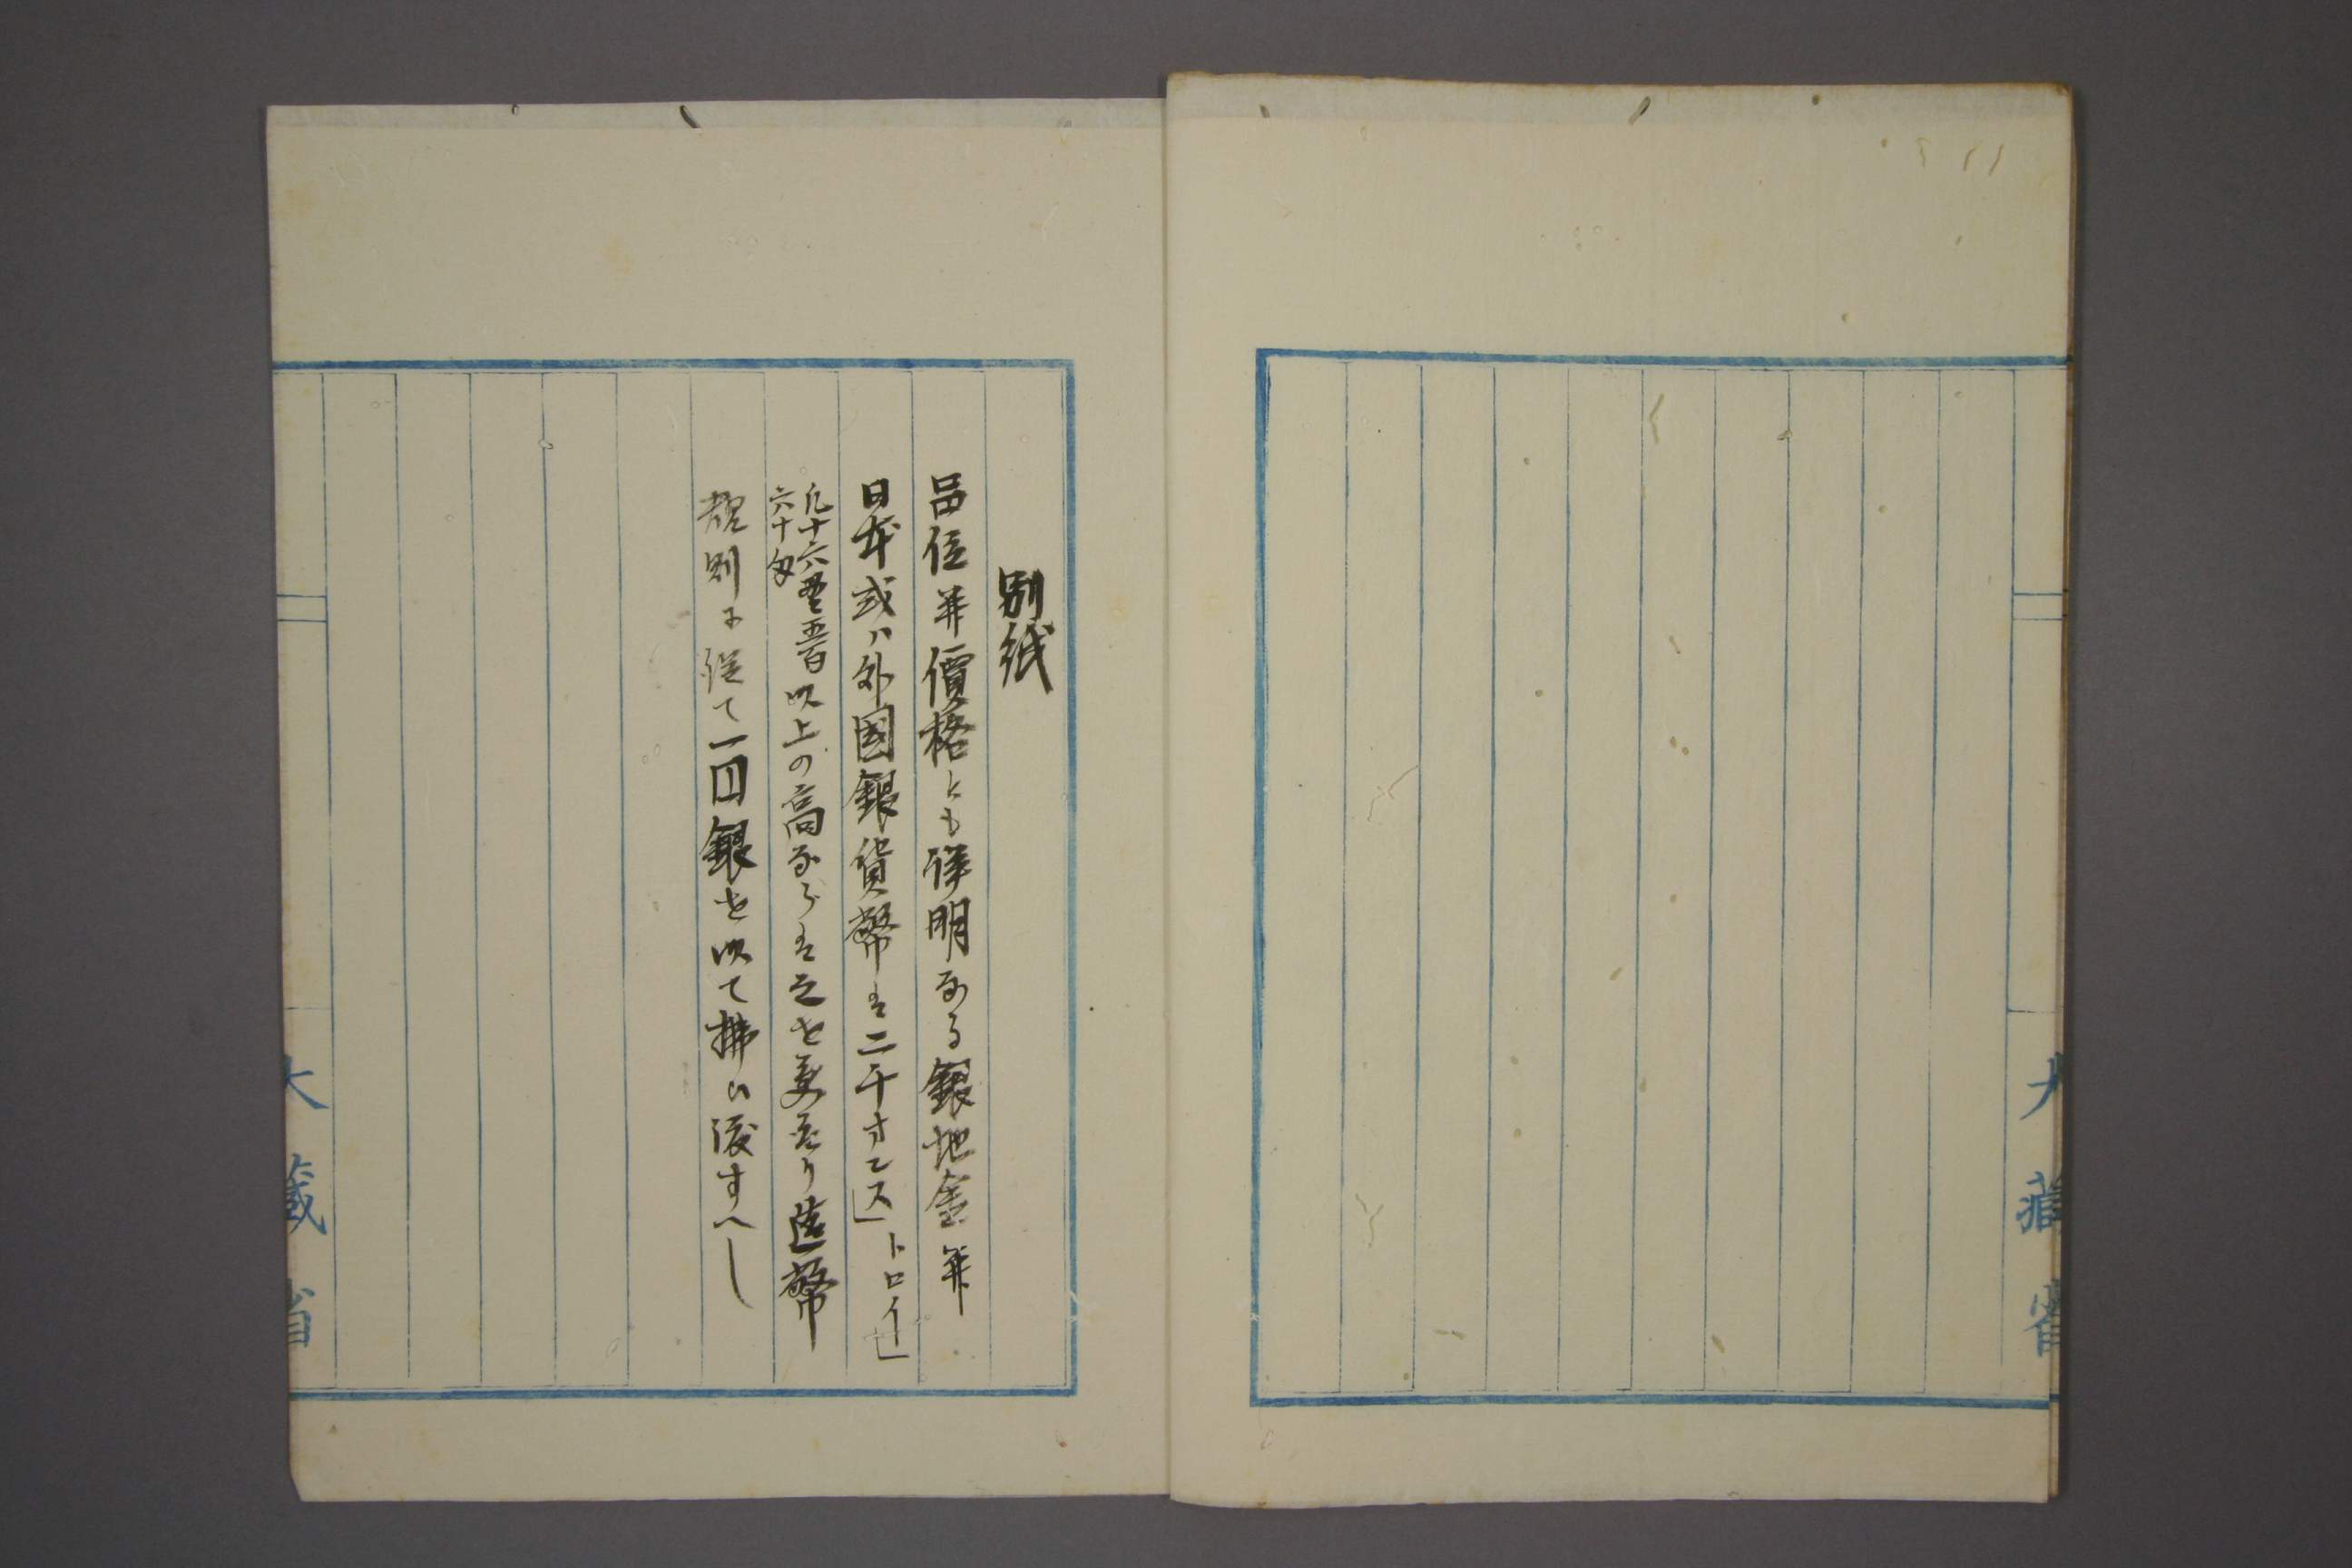 大藏省
別紙
品位并價格とも詳明なる銀地金并
日本或ハ外國銀貨幣は二千オンス」トロイー」
凡十六貫五百
六十匁
以上の高ならは之を受取り造幣
規則に従て一円銀を以て拂ひ渡すへし
大藏省